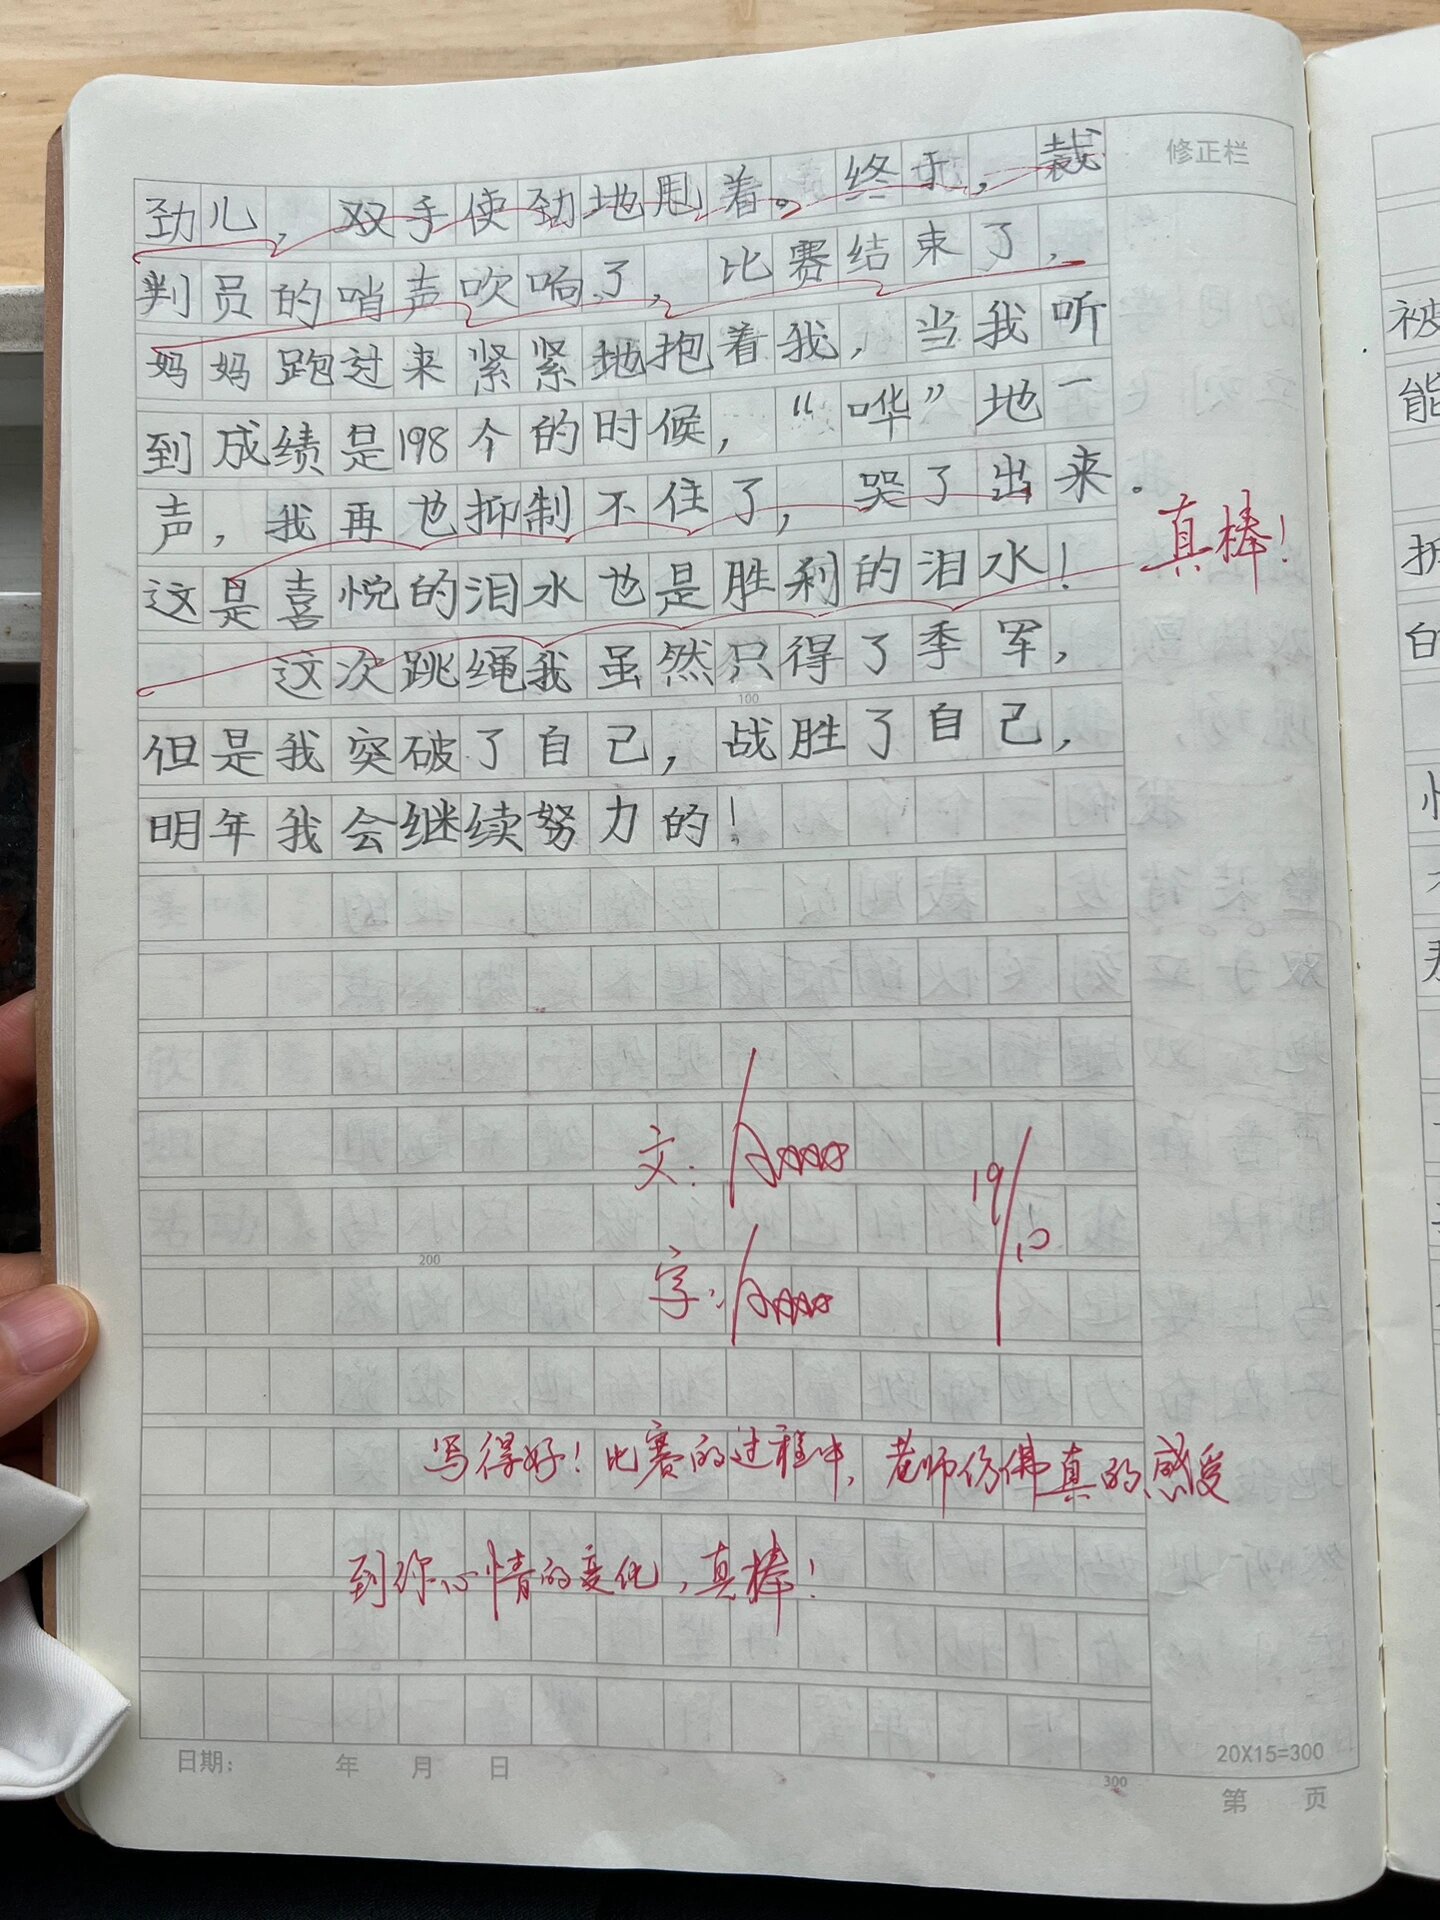 修正栏
劲儿，双手使劲地甩着。终于，裁
判员的哨声吹响了，比赛结束了，
妈妈跑过来紧紧地抱着我，当我听
到成绩是198个的时候，“哗”地一
声，我再也抑制不住了，哭了出来.
真棒！
这是喜悦的泪水也是胜利的泪水！
这次跳绳我虽然只得了季军，
100
但是我突破了自己，战胜了自己，
明年我会继续努力的！
文：
19/10
字：
200
写得好！比赛的过程中，老师仿佛真的感受
到你心情的变化，真棒！
日期： 年 月 日
20X15=300
300
第 页
被
能
的